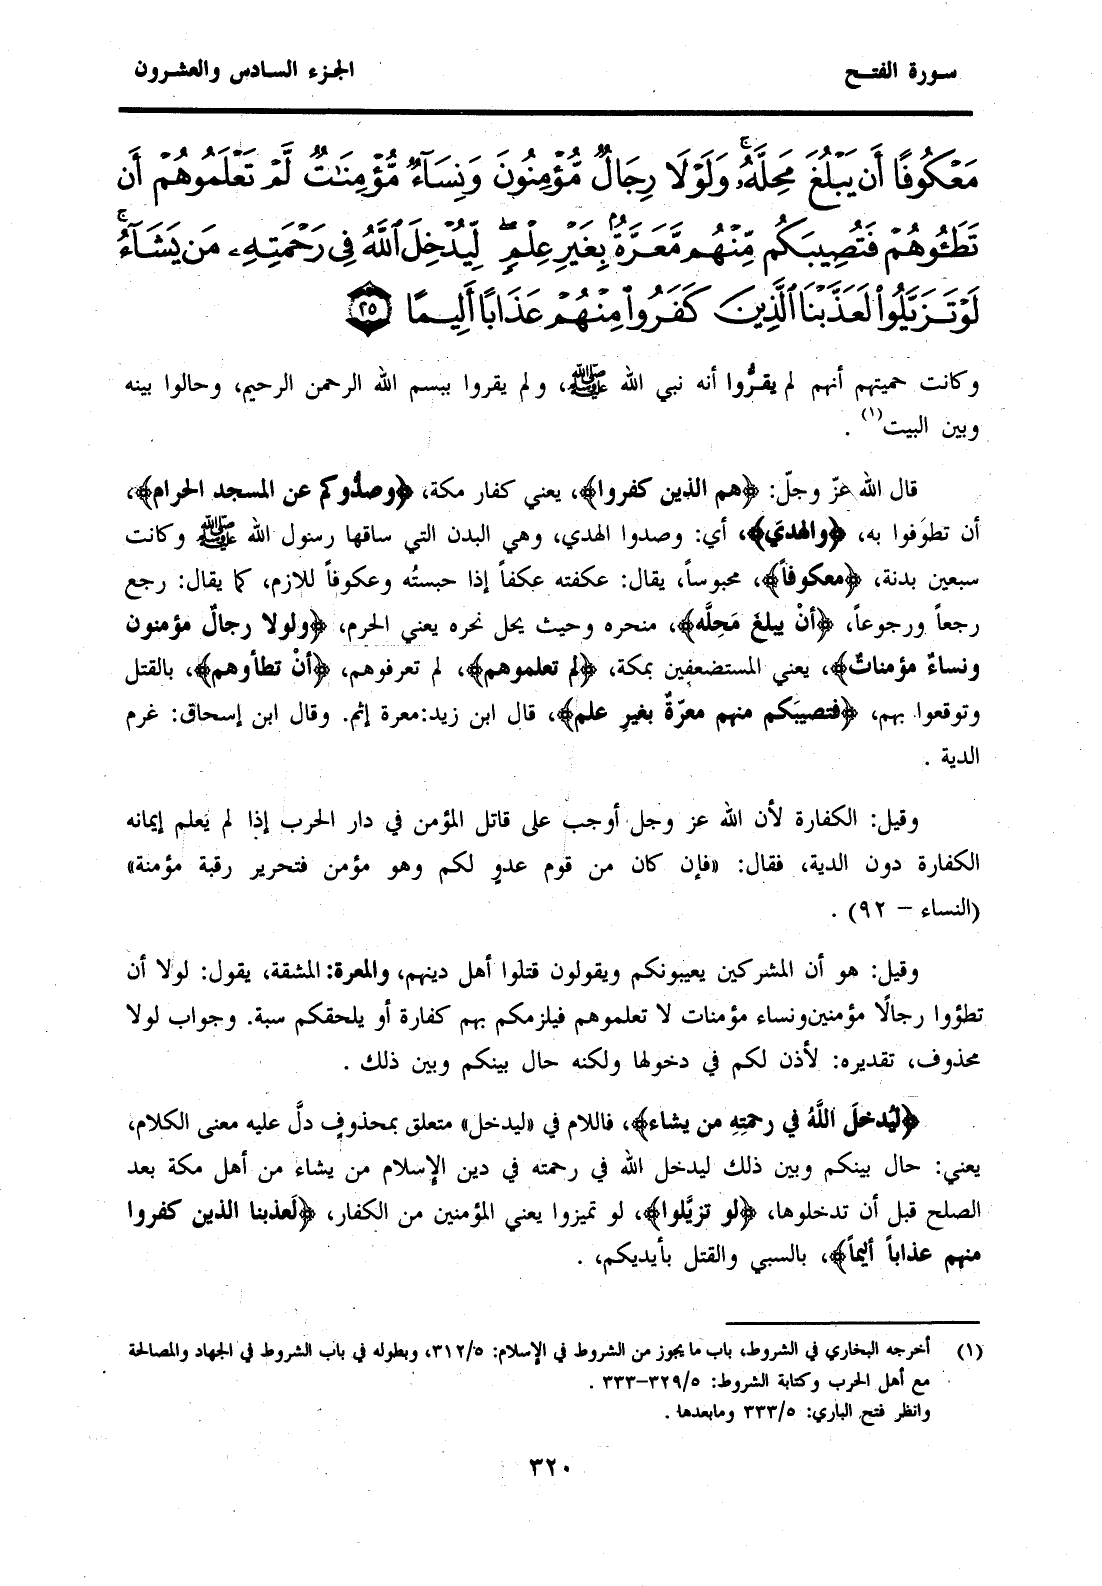 سورة الفتح
الجزء السادس والعشرون
مَعْكُوفًا أَن يَبْلُغَ مَحِلَّهُۥۚ وَلَوْلَا رِجَالٌ مُّؤْمِنُونَ وَنِسَآءٌ مُّؤْمِنَٰتٌ لَّمْ تَعْلَمُوهُمْ أَن
تَطَـُٔوهُمْ فَتُصِيبَكُم مِّنْهُم مَّعَرَّةٌۢ بِغَيْرِ عِلْمٍۖ لِّيُدْخِلَ ٱللَّهُ فِى رَحْمَتِهِۦ مَن يَشَآءُۚ
لَوْ تَزَيَّلُوا۟ لَعَذَّبْنَا ٱلَّذِينَ كَفَرُوا۟ مِنْهُمْ عَذَابًا أَلِيمًا ٢٥
وكانت حميتهم أنهم لم يقرُّوا أنه نبي الله ﷺ، ولم يقروا ببسم الله الرحمن الرحيم، وحالوا بينه
وبين البيت(١) .
قال الله عزّ وجلّ: ﴿هم الذين كفروا﴾، يعني كفار مكة، ﴿وصدُّوكم عن المسجد الحرام﴾،
أن تطوَفوا به، ﴿والهديَ﴾، أي: وصدوا الهدي، وهي البدن التي ساقها رسول الله ﷺ وكانت
سبعين بدنة، ﴿معكوفاً﴾، محبوساً، يقال: عكفته عكفاً إذا حبستُه وعكوفاً للازم، كما يقال: رجع
رجعاً ورجوعاً، ﴿أنْ يبلغَ مَحِلَّه﴾، منحره وحيث يحل نحره يعني الحرم، ﴿ولولا رجالٌ مؤمنون
ونساءٌ مؤمناتٌ﴾، يعني المستضعفين بمكة، ﴿لم تعلموهم﴾، لم تعرفوهم، ﴿أنْ تطأوهم﴾، بالقتل
وتوقعوا بهم، ﴿فتصيبَكم منهم معرّةٌ بغيرِ علم﴾، قال ابن زيد:معرة إثم. وقال ابن إسحاق: غرم
الدية .
وقيل: الكفارة لأن الله عز وجل أوجب على قاتل المؤمن في دار الحرب إذا لم يَعلم إيمانه
الكفارة دون الدية، فقال: «فإن كان من قوم عدوٍ لكم وهو مؤمن فتحرير رقبة مؤمنة»
(النساء – ٩٢) .
وقيل: هو أن المشركين يعيبونكم ويقولون قتلوا أهل دينهم، والمعرة: المشقة، يقول: لولا أن
تطؤوا رجالًا مؤمنين ونساء مؤمنات لا تعلموهم فيلزمكم بهم كفارة أو يلحقكم سبة. وجواب لولا
محذوف، تقديره: لأذن لكم في دخولها ولكنه حال بينكم وبين ذلك .
﴿ليُدخلَ اللَّهُ في رحمتِهِ من يشاء﴾، فاللام في «ليدخل» متعلق بمحذوفٍ دلَّ عليه معنى الكلام،
يعني: حال بينكم وبين ذلك ليدخل الله في رحمته في دين الإسلام من يشاء من أهل مكة بعد
الصلح قبل أن تدخلوها، ﴿لو تزيَّلوا﴾، لو تميزوا يعني المؤمنين من الكفار، ﴿لَعذبنا الذين كفروا
منهم عذاباً أليماً﴾، بالسبي والقتل بأيديكم، .
(١) أخرجه البخاري في الشروط، باب ما يجوز من الشروط في الإسلام: ٣١٢/٥، وبطوله في باب الشروط في الجهاد والمصالحة
مع أهل الحرب وكتابة الشروط: ٣٢٩/٥–٣٣٣ .
وانظر فتح الباري: ٣٣٣/٥ ومابعدها .
٣٢٠